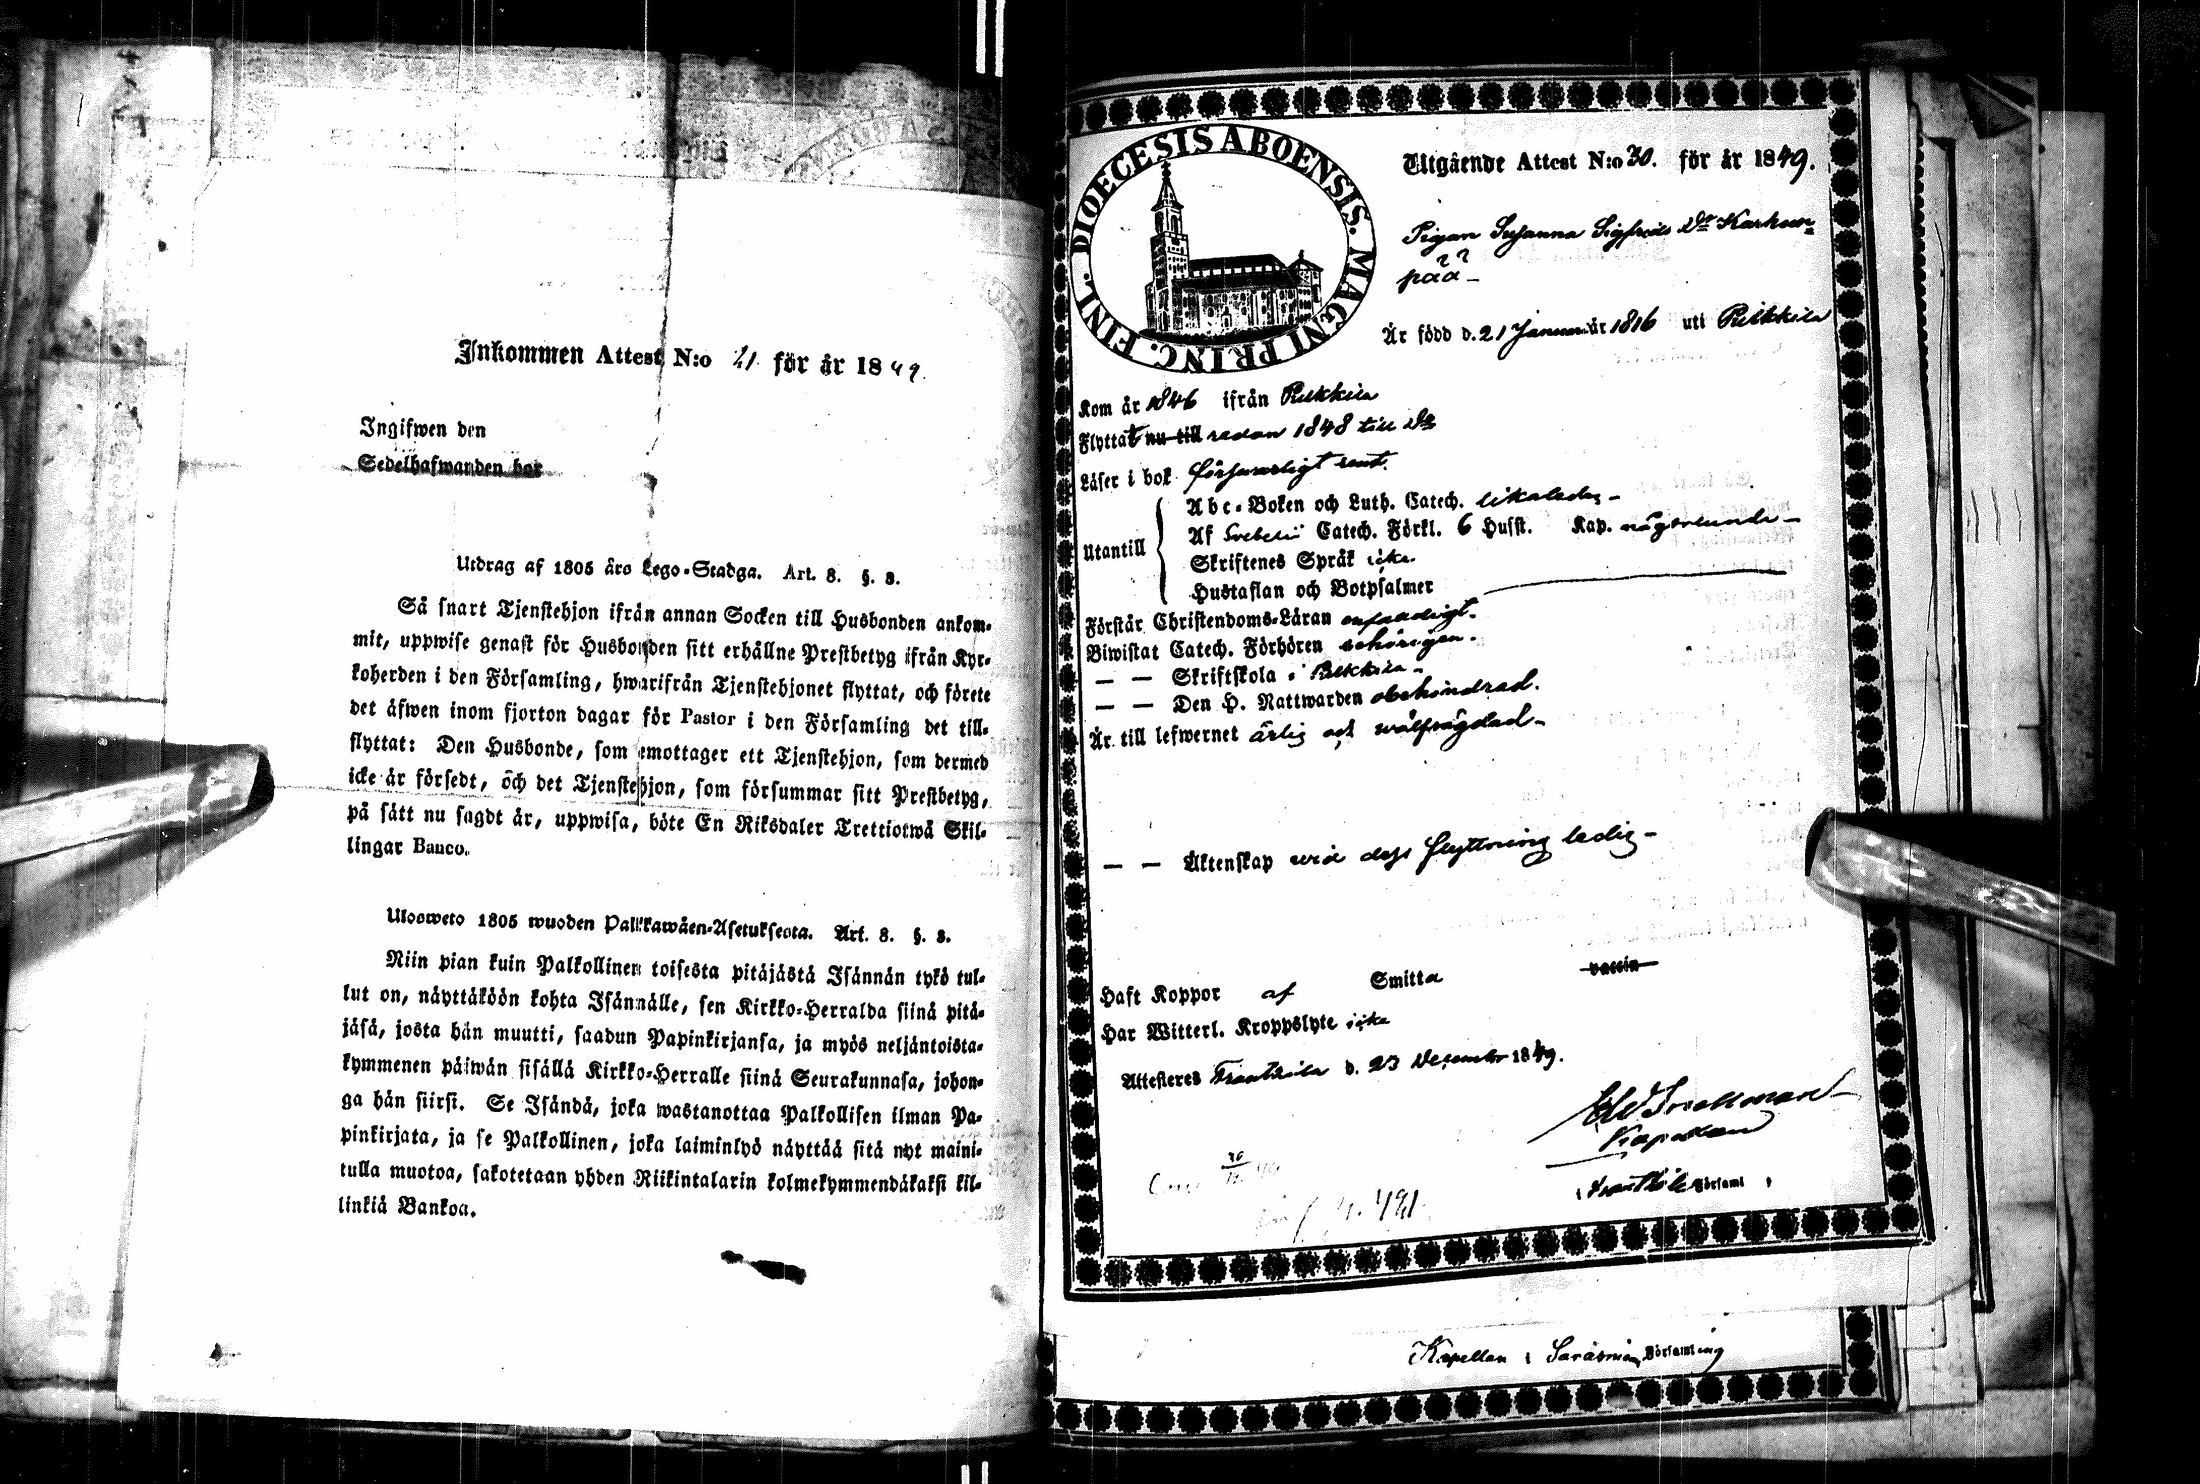 Inkommen Attest N:o 21 för år 1849.
Ingifwen den
Sedelhafwanden bor
Utdrag af 1805 års Lego-Stadga. Art. 8. §. 3.
Så snart Tjenstehjon ifrån annan Socken till Husbonden ankom-
mit, uppwise genast för Husbonden sitt erhållne Prestbetyg ifrån Kyr-
koherden i den Församling, hwarifrån Tjenstehjonet flyttat, och förete
det äfwen inom fjorton dagar för Pastor i den Församling det till-
flyttat: Den Husbonde, som emottager ett Tjenstehjon, som dermed
icke är försedt, och det Tjenstehjon, som försummar sitt Prestbetyg,
på sätt nu sagdt är, uppwisa, böte En Riksdaler Trettiotwå Skil-
lingar Banco.
Ulosweto 1805 wuoden Palkkawäen-Asetuksesta. Art. 8. §. 3.
Niin pian kuin Palkollinen toisesta pitäjästä Isännän tykö tul-
lut on, näyttäköön kohta Isännälle, sen Kirkko-Herralda siinä pitä-
jäsä, josta hän muutti, saadun Papinkirjansa, ja myös neljäntoista-
kymmenen päiwän sisällä Kirkko-Herralle siinä Seurakunnasa, johon-
ga hän siirsi. Se Isändä, joka wastanottaa Palkollisen ilman Pa-
pinkirjata, ja se Palkollinen, joka laiminlyö näyttää sitä nyt maini-
tulla muotoa, sakotetaan yhden Riikintalarin kolmekymmendäkaksi kil-
linkiä Bankoa.
DIOECESIS ABOENSIS. MAGNI PRINC. FINL.
Utgående Attest N:o 30. för år 1849.
Pigan Susanna Sigfrids Dr Karhun-
pää
Är född d. 21 Januari år 1816 uti Pulkkila
Kom år 1846 ifrån Pulkkila
Flyttat nu till redan 1848 till Do
Läser i bok försvarligt rent.
Utantill
Abc-Boken och Luth. Catech. likaledes
Af Svebelii Catech. Förkl. 6 Hufst. Kap. någorlunda
Skriftenes Språk icke
Hustaflan och Botpsalmer
Förstår Christendoms-Läran enfaldigt.
Biwistat Catech. Förhören behörigen.
— — Skriftskola i Pulkkila
— — Den H. Nattwarden obehindrad.
Är till lefwernet ärlig och wälfrägdad
— — Äktenskap wid dess flyttning ledig
Haft Koppor af Smitta vaccin
Har Witterl. Kroppslyte icke
Attesteres Frantsila d. 23 December 1849.
Kapellan
i Frantsila Församl
491
Kapellan i Församling